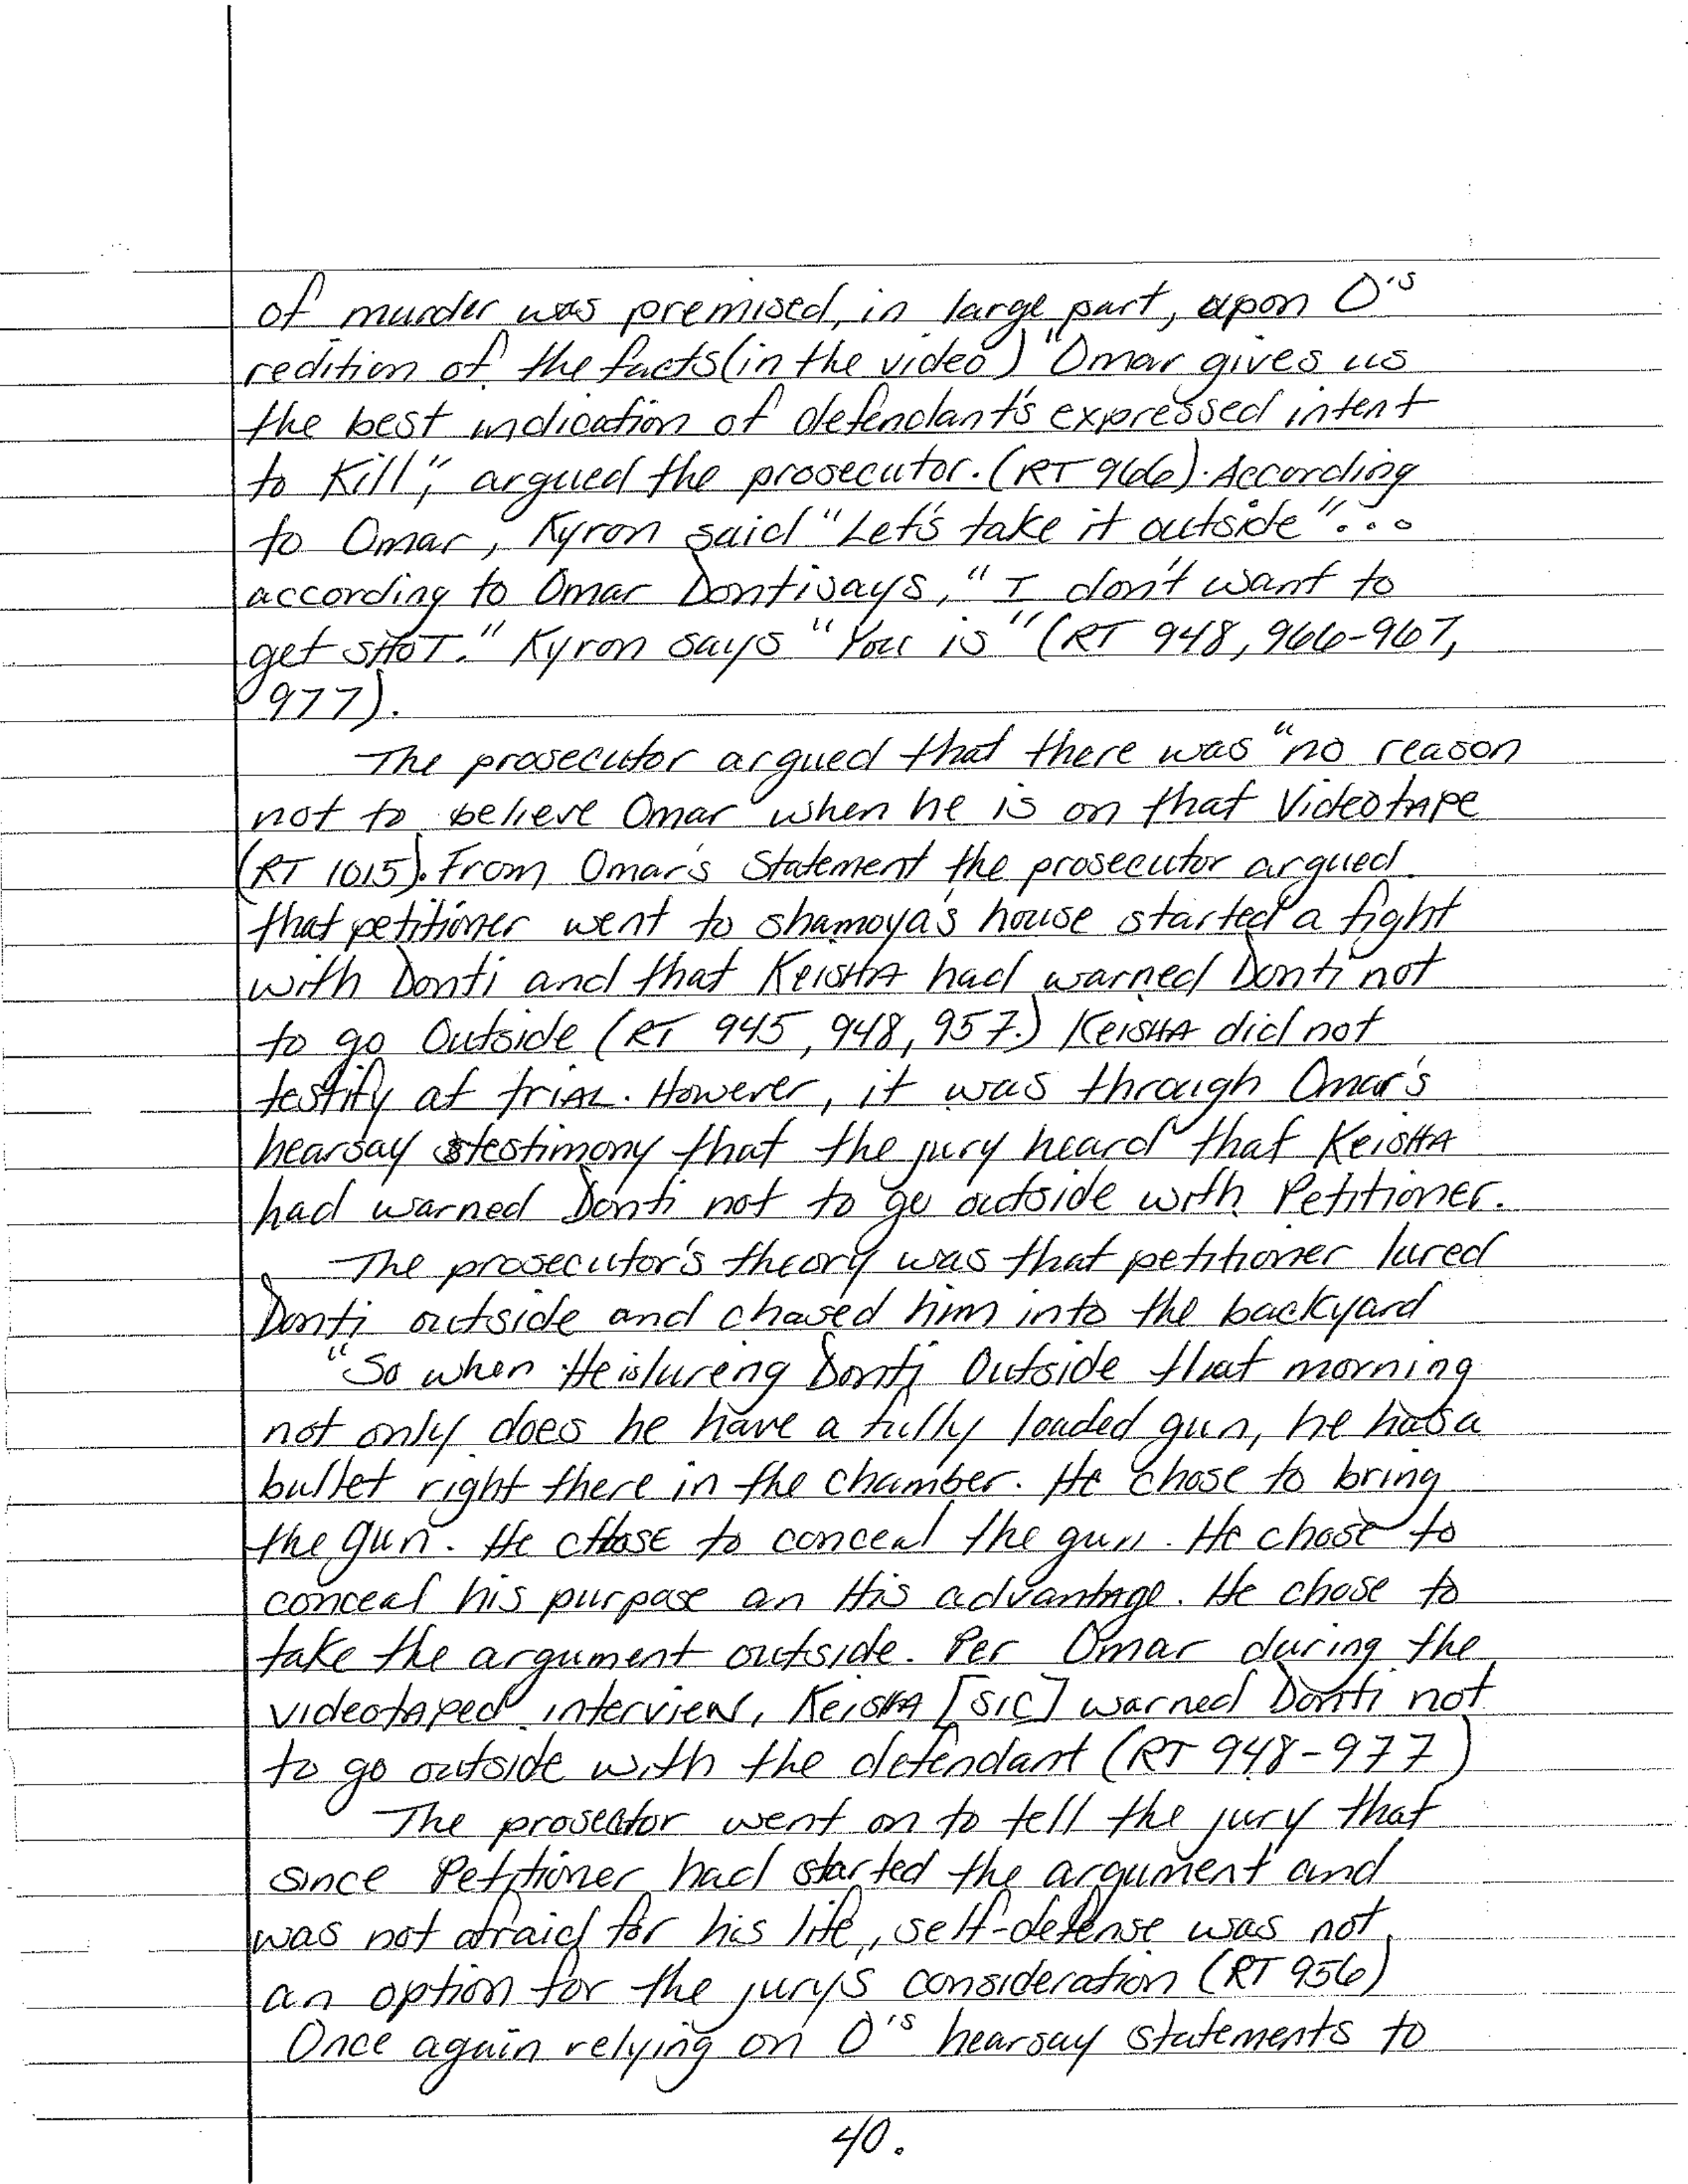 of murder was premised, in large part, upon O's
redition of the facts (in the video) "Omar gives us
the best indication of defendant's expressed intent
to Kill", argued the prosecutor. (RT 966). According
to Omar, Kyron said "Let's take it outside"...
according to Omar Donti says, "I don't want to
get SHOT." Kyron says "You is" (RT 948, 966-967,
977).
The prosecutor argued that there was "no reason
not to believe Omar" when he is on that VideotAPe
(RT 1015). From Omar's Statement the prosecutor argued
that petitioner went to shamoya's house started a fight
with Donti and that KeisHA had warned Donti not
to go Outside (RT 945, 948, 957.) KeisHA did not
testify at triAL. However, it was through Omar's
hearsay testimony that the jury heard that KeisHA
had warned Donti not to go outside with Petitioner.
The prosecutor's theory was that petitioner lured
Donti outside and chased him into the backyard
"So when He is lureng Donti Outside that morning
not only does he have a fully loaded gun, he has a
bullet right there in the chamber. He chose to bring
the gun. He cHose to conceal the gun. He chose to
conceal his purpose an His advantage. He chose to
take the argument outside. Per Omar during the
videotaped interview, KeisHA [SIC] warned Donti not
to go outside with the defendant (RT 948-977)
The prosector went on to tell the jury that
since Petitioner had started the argument and
was not afraid for his life, self-defense was not
an option for the jury's consideration (RT 956)
Once again relying on O's hearsay statements to
40.